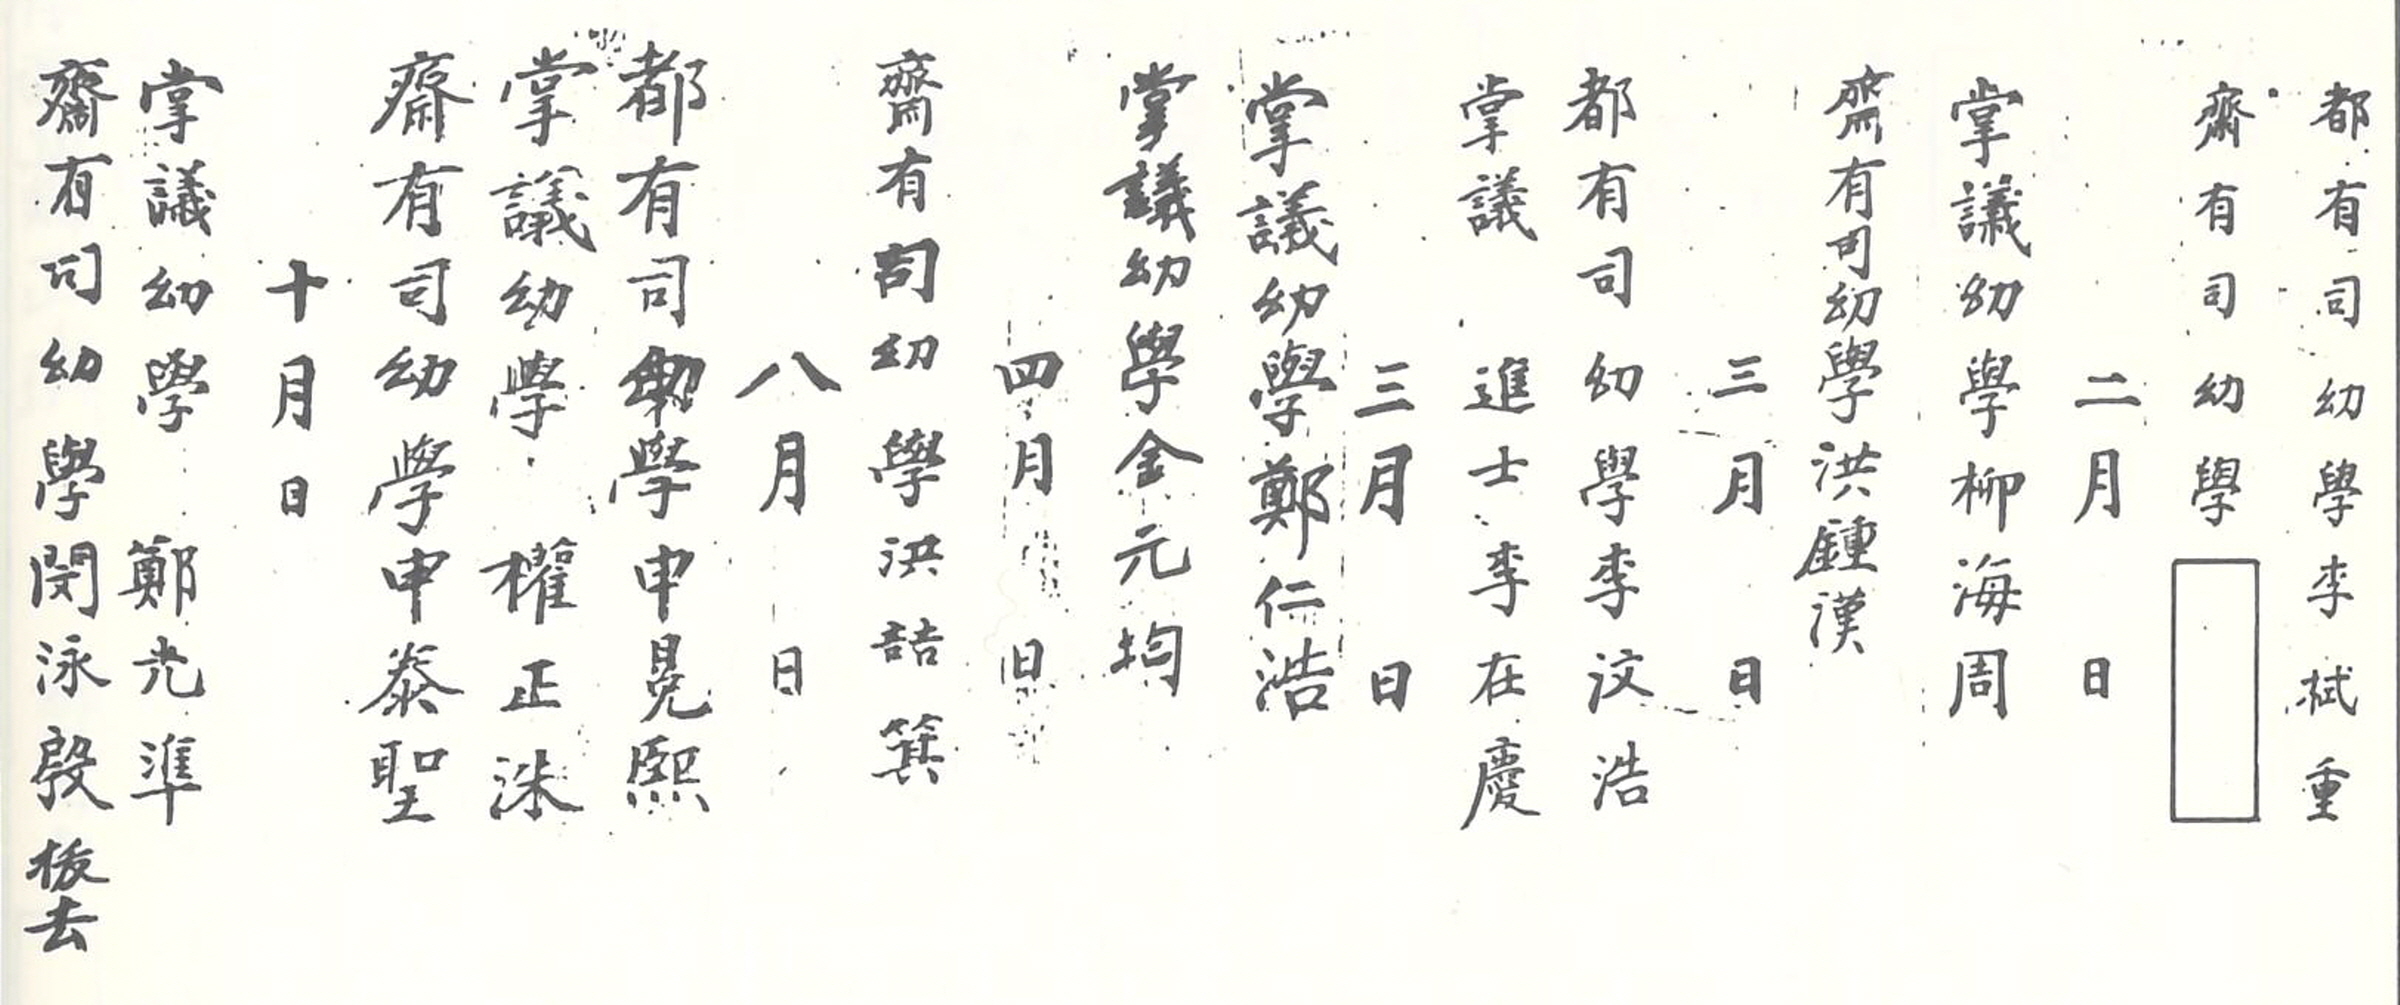 都有司幼學李栻重
齋有司幼學
二月日
掌議幼學柳海周
齋有司幼學洪鍾漢
三月日
都有司幼學李汶浩
掌議進士李在慶
三月日
掌議幼學鄭仁浩
掌議幼學金元均
四月日
齋有司幼學洪喆箕
八月日
都有司幼學申冕熙
掌議幼學權正洙
齋有司幼學申泰聖
十月日
掌議幼學鄭光準
齋有司幼學閔泳殷拔去